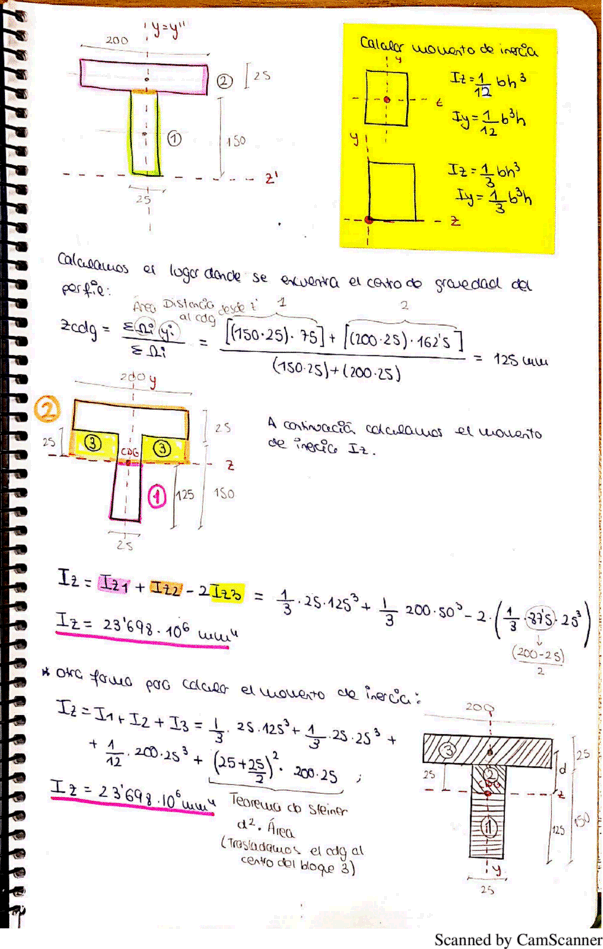 y=y''
200
② 25
① 150
z'
25
Calcular momento de inercia
y
z
Iz = 1/12 bh³
Iy = 1/12 b³h
y
z
Iz = 1/3 bh³
Iy = 1/3 b³h
Calculamos el lugar donde se encuentra el centro de gravedad del
perfil:
Área Distancia desde z' al cdg
1 2
zcdg = ΣΩi yi / ΣΩi = [(150·25)·75] + [(200·25)·162'5] / (150·25)+(200·25) = 125 mm
200 y
②
25 ③ CDG ③ 25
z
① 125 150
25
A continuación calculamos el momento
de inercia Iz.
Iz = Iz1 + Iz2 - 2Iz3 = 1/3 · 25·125³ + 1/3 200·50³ - 2·(1/3 · 87'5 · 25³)
(200-25)/2
Iz = 23'698·10⁶ mm⁴
* Otra forma para calcular el momento de inercia:
Iz = I1 + I2 + I3 = 1/3 · 25·125³ + 1/3 · 25·25³ +
+ 1/12 · 200·25³ + (25+25/2)² · 200·25 ;
Iz = 23'698·10⁶ mm⁴
Teorema de Steiner
d². Área
(Trasladamos el cdg al
centro del bloque 3)
200
③ 25
25 ② d
z
① 125 150
y
25
Scanned by CamScanner